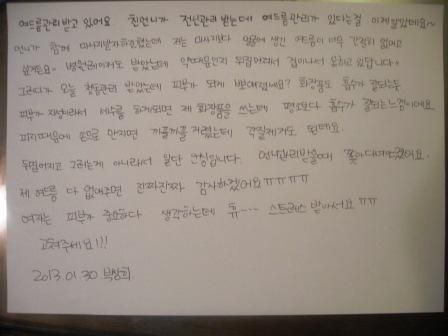 여드름관리 받고 있어요 친언니가 전신관리 받는데 여드름관리가 있다는걸 이제 알았네요~
언니가 함께 마사지받자 했는데 저는 마사지보다 얼굴에 생긴 여드름이 너무 간절히 없애고
싶거든요. 병원레이저도 받았는데 약 뒤집어져서 겁이나서 오히려 있답니다.
그러다가 오늘 첫관리 받았는데 피부가 되게 뽀얘졌네요? 화장품도 흡수가 잘되는듯
피부가 지성이라서 세수를 하게되면 제 화장품을 쓰는데 평소보다 흡수가 잘되는느낌이에요
피지때문에 손으로 만지면 까끌까끌 각질제거도 된데요.
뒤집어지고 그러는게 아니라서 일단 안심입니다. 언니관리받을때 쫓아다녀야겠어요.
제 여드름 다 없애주면 진짜진짜 감사하겠어요ㅠㅠㅠㅠ
여자는 피부가 중요하다 생각하는데 휴--- 스트레스 받아서요ㅠㅠ
고쳐주세요!!!
2013.01.30 박상희